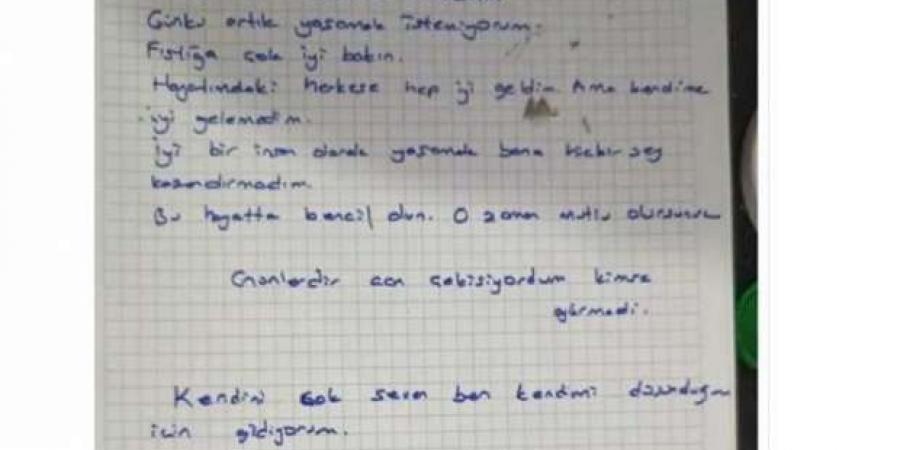 Çünkü artık yaşamak istemiyorum.
Fıstığa çok iyi bakın.
Hayatımdaki herkese hep iyi geldim Ama kendime
iyi gelemedim.
İyi bir insan olarak yaşamak bana hiçbir şey
kazandırmadım.
Bu hayatta bencil olun. O zaman mutlu olursunuz
Günlerdir can çekişiyordum kimse
görmedi.
Kendini çok seven ben kendimi düşündüğüm
için gidiyorum.